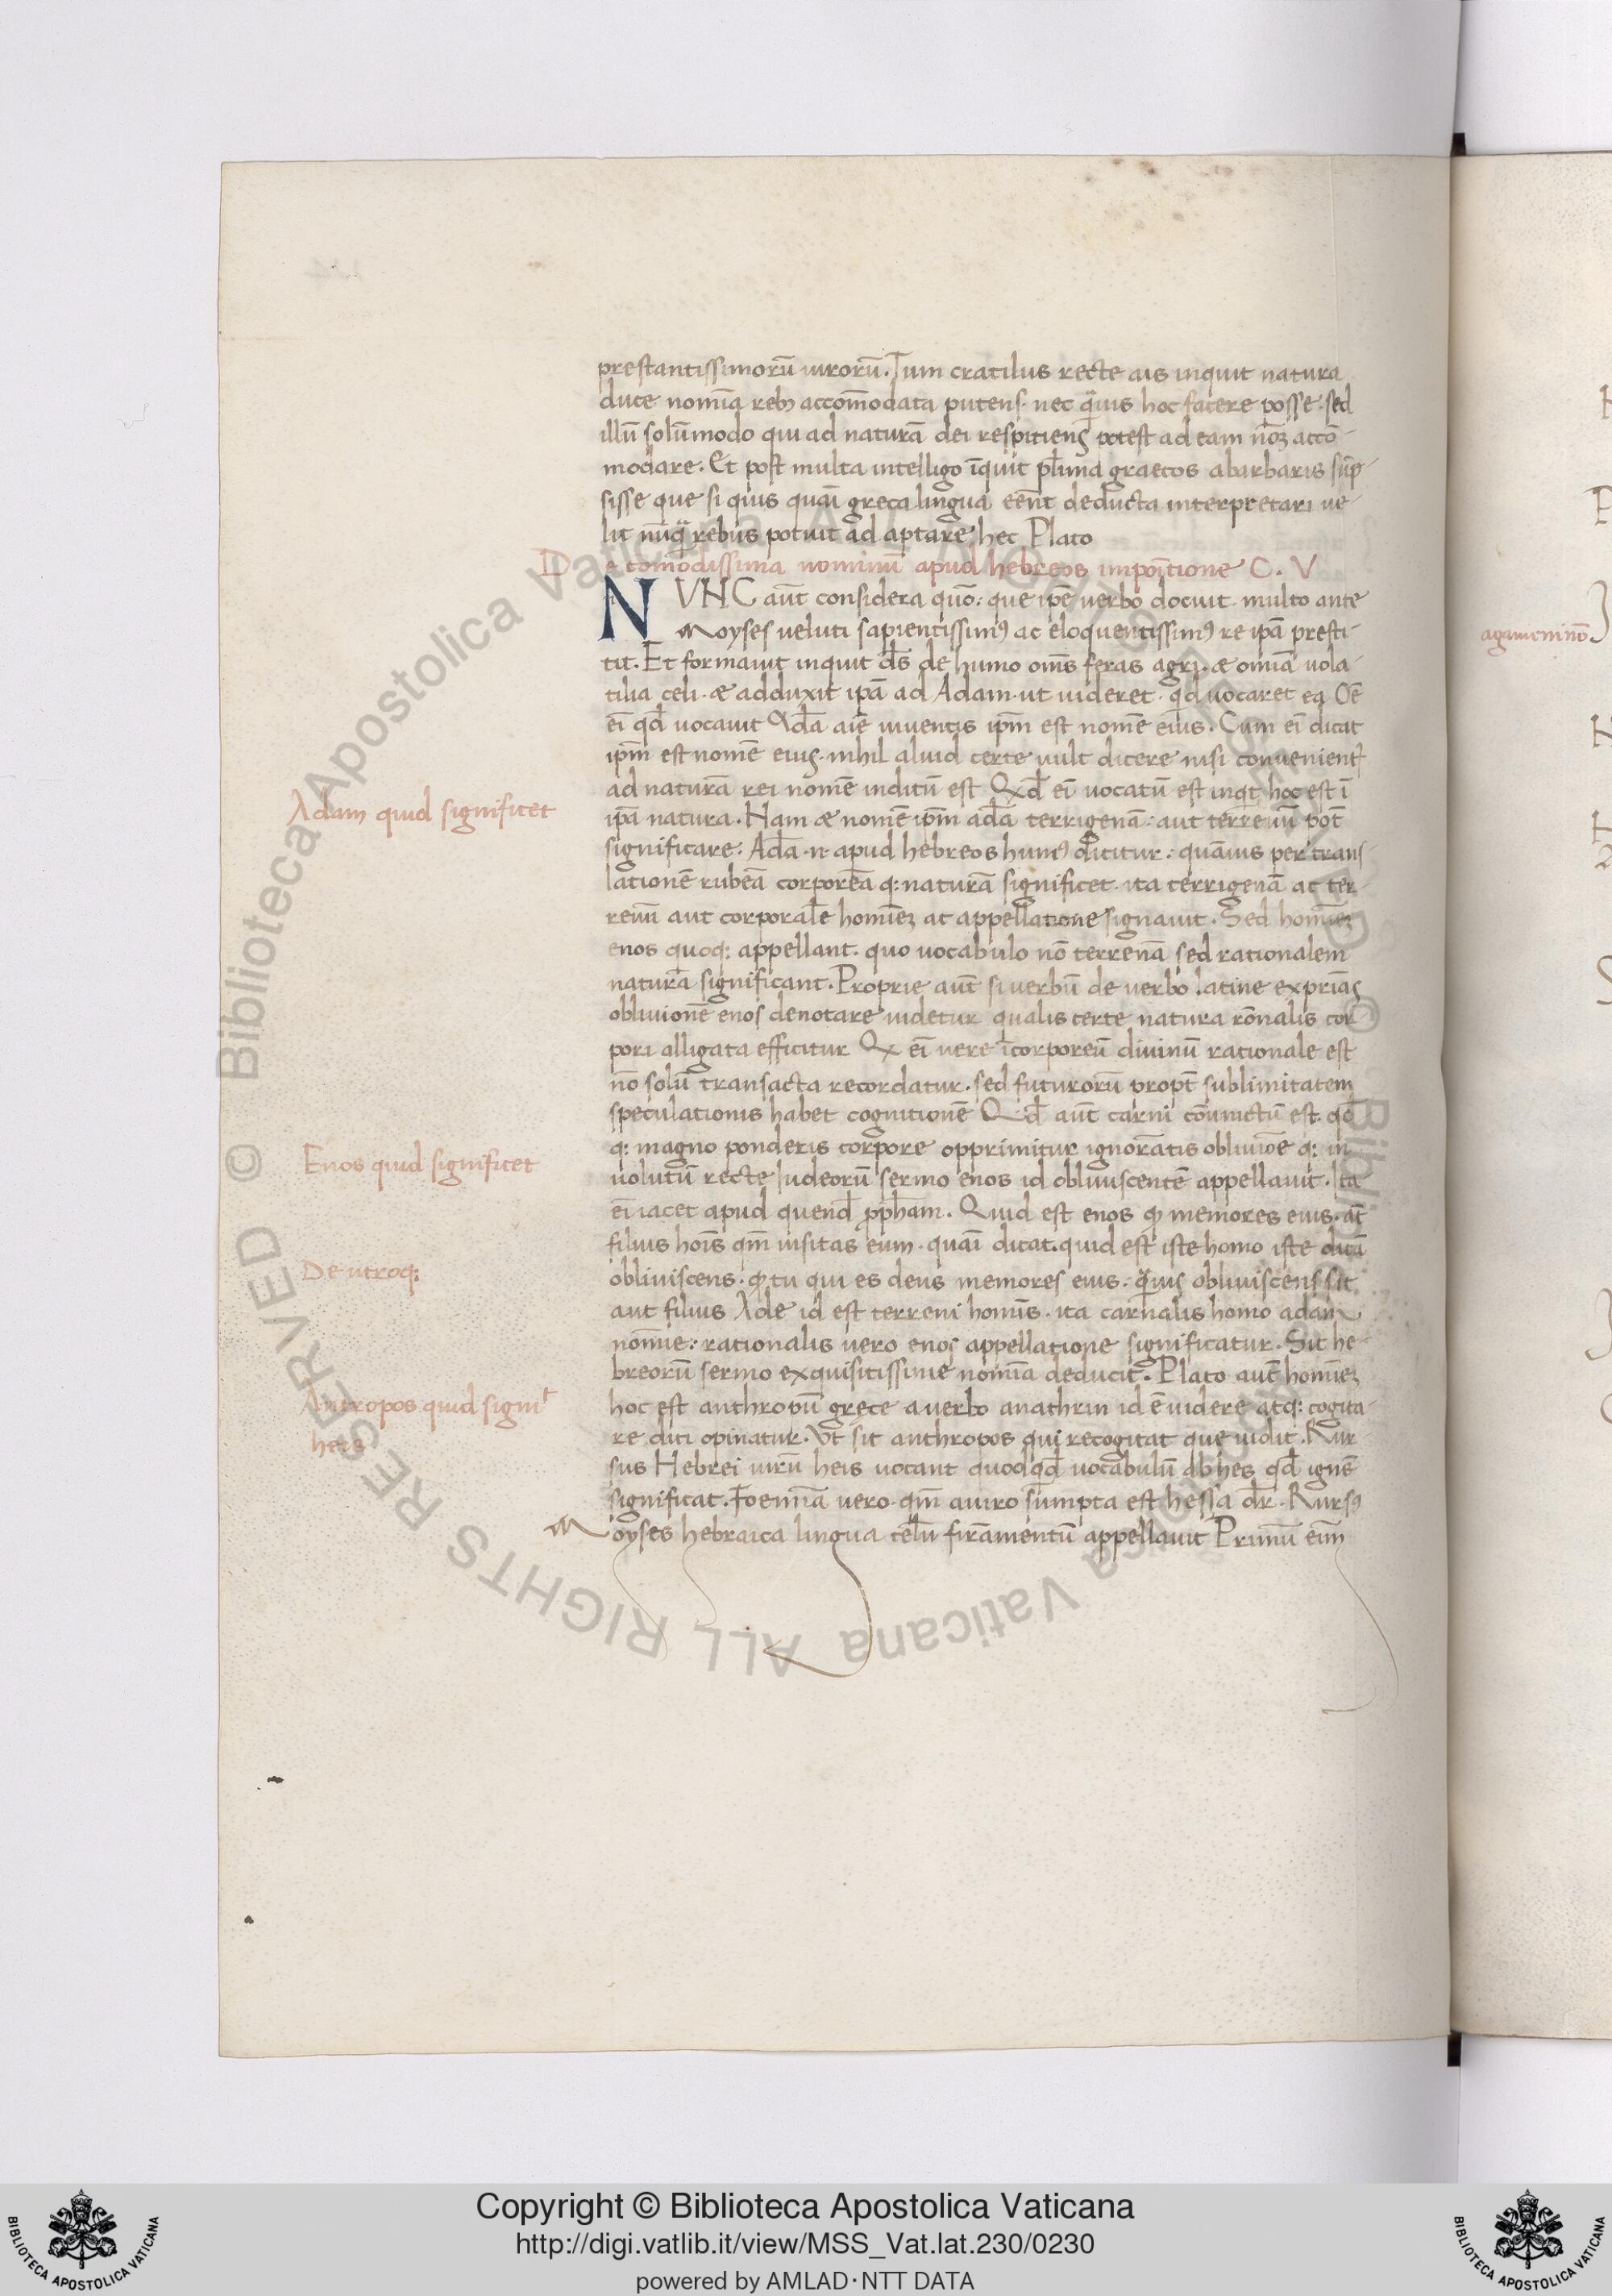 prestantissimorū uirorū. Tum cratilus recte ais inquit natura
duce nomīa rebȝ accom̄odata putens. nec q̄uis hoc facere posse. sed
illū solūmodo qui ad naturā dei respitiens potest ad eam nōȝ accō-
modare. Et post multa intelligo īquit pl̄ima graecos abarbaris sūp-
sisse que si quis quāī greca lingua eēnt deducta interpretari ue-
lit nūq̄ rebus potuit ad aptare hec Plato
De comodissima nominū apud hebreos impoītione C. V
NVNC aūt considera quō: que ipē uerbo docuit. multo ante
Moyses ueluti sapientissimꝰ ac eloquentissimꝰ re ipā presti-
tit. Et formauit inquit dꝰs de humo om̄s feras agri. æ omīa uola-
tilia celi. æ adduxit ipā ad Adam. ut uideret. qd uocaret ea Oē
eī qd̄ uocauit Adā aīe uiuentis ipm̄ est nomē eius. Cum eī dicat
ipm̄ est nomē eius. nihil aluid certe uult dicere nisi conuenient̄
ad naturā rei nomē inditū est Qd̄ eī uocatū est inqt hoc est ī
Adam quid significet
ipā natura. Nam æ nomē ipm̄ adā terrigenā: aut terrenū pōt
significare. Adā. n. apud hebreos humꝰ dicitur: quāuis per trans-
lationē rubeā corporeā q: naturā significet. ita terrigenā ac ter-
renū aut corporalē homīeȝ ac appellatione signauit. Sed homīeȝ
enos quoq: appellant. quo uocabulo nō terrenā sed rationalem
naturā significant. Proprie aūt si uerbū de uerbo latine exprīas
obliuionē enos denotare uidetur qualis certe natura rōnalis cor
pori alligata efficitur Q eī uere īcorporeū diuinū rationale est
nō solū transacta recordatur. sed futurorū propt̄ sublimitatem
speculationis habet cognitionē Qd̄ aūt carni cōiunctū est. qd̄
q: magno ponderis corpore opprimitur ignorātis obliuiōe q: in
Enos quid significet
uolutū recte Iudeorū sermo enos id obliuiscentē appellauit. Ita
eī iacet apud quend̄ pphām. Quid est enos qp memores eius. at̄
filius hoīs qm̄ uisitas eum. quāī dicat. quid est iste homo iste dicā
De utroq:
obliuiscens. qp tu qui es deus memores eius. quis obliuiscens sit
aut filius Ade id est terreni homīs. ita carnalis homo adam
nomīe: rationalis uero enos appellatione significatur. Sic he-
breorū sermo exquisitissime nomīa deducit. Plato aūt homīeȝ
Antropos quid signit̄
hoc est anthropū grece a uerbo anathrin id ē uidere atq: cogita-
heis
re dici opinatur. Vt sit anthropos qui recogitat que uidit. Rur
sus Hebrei uirū heis uocant quodqd̄ uocabulū ab hes qd̄ ignē
significat. Foemīa uero. qm̄ auiro sumpta est hessa dr̄. Rursꝰ
Moyses hebraica lingua celū firāmentū appellauit Primū eīm
agamēninō
Copyright © Biblioteca Apostolica Vaticana
http://digi.vatlib.it/view/MSS_Vat.lat.230/0230
powered by AMLAD·NTT DATA
BIBLIOTECA APOSTOLICA VATICANA
BIBLIOTECA APOSTOLICA VATICANA
© Biblioteca Apostolica Vaticana ALL RIGHTS RESERVED